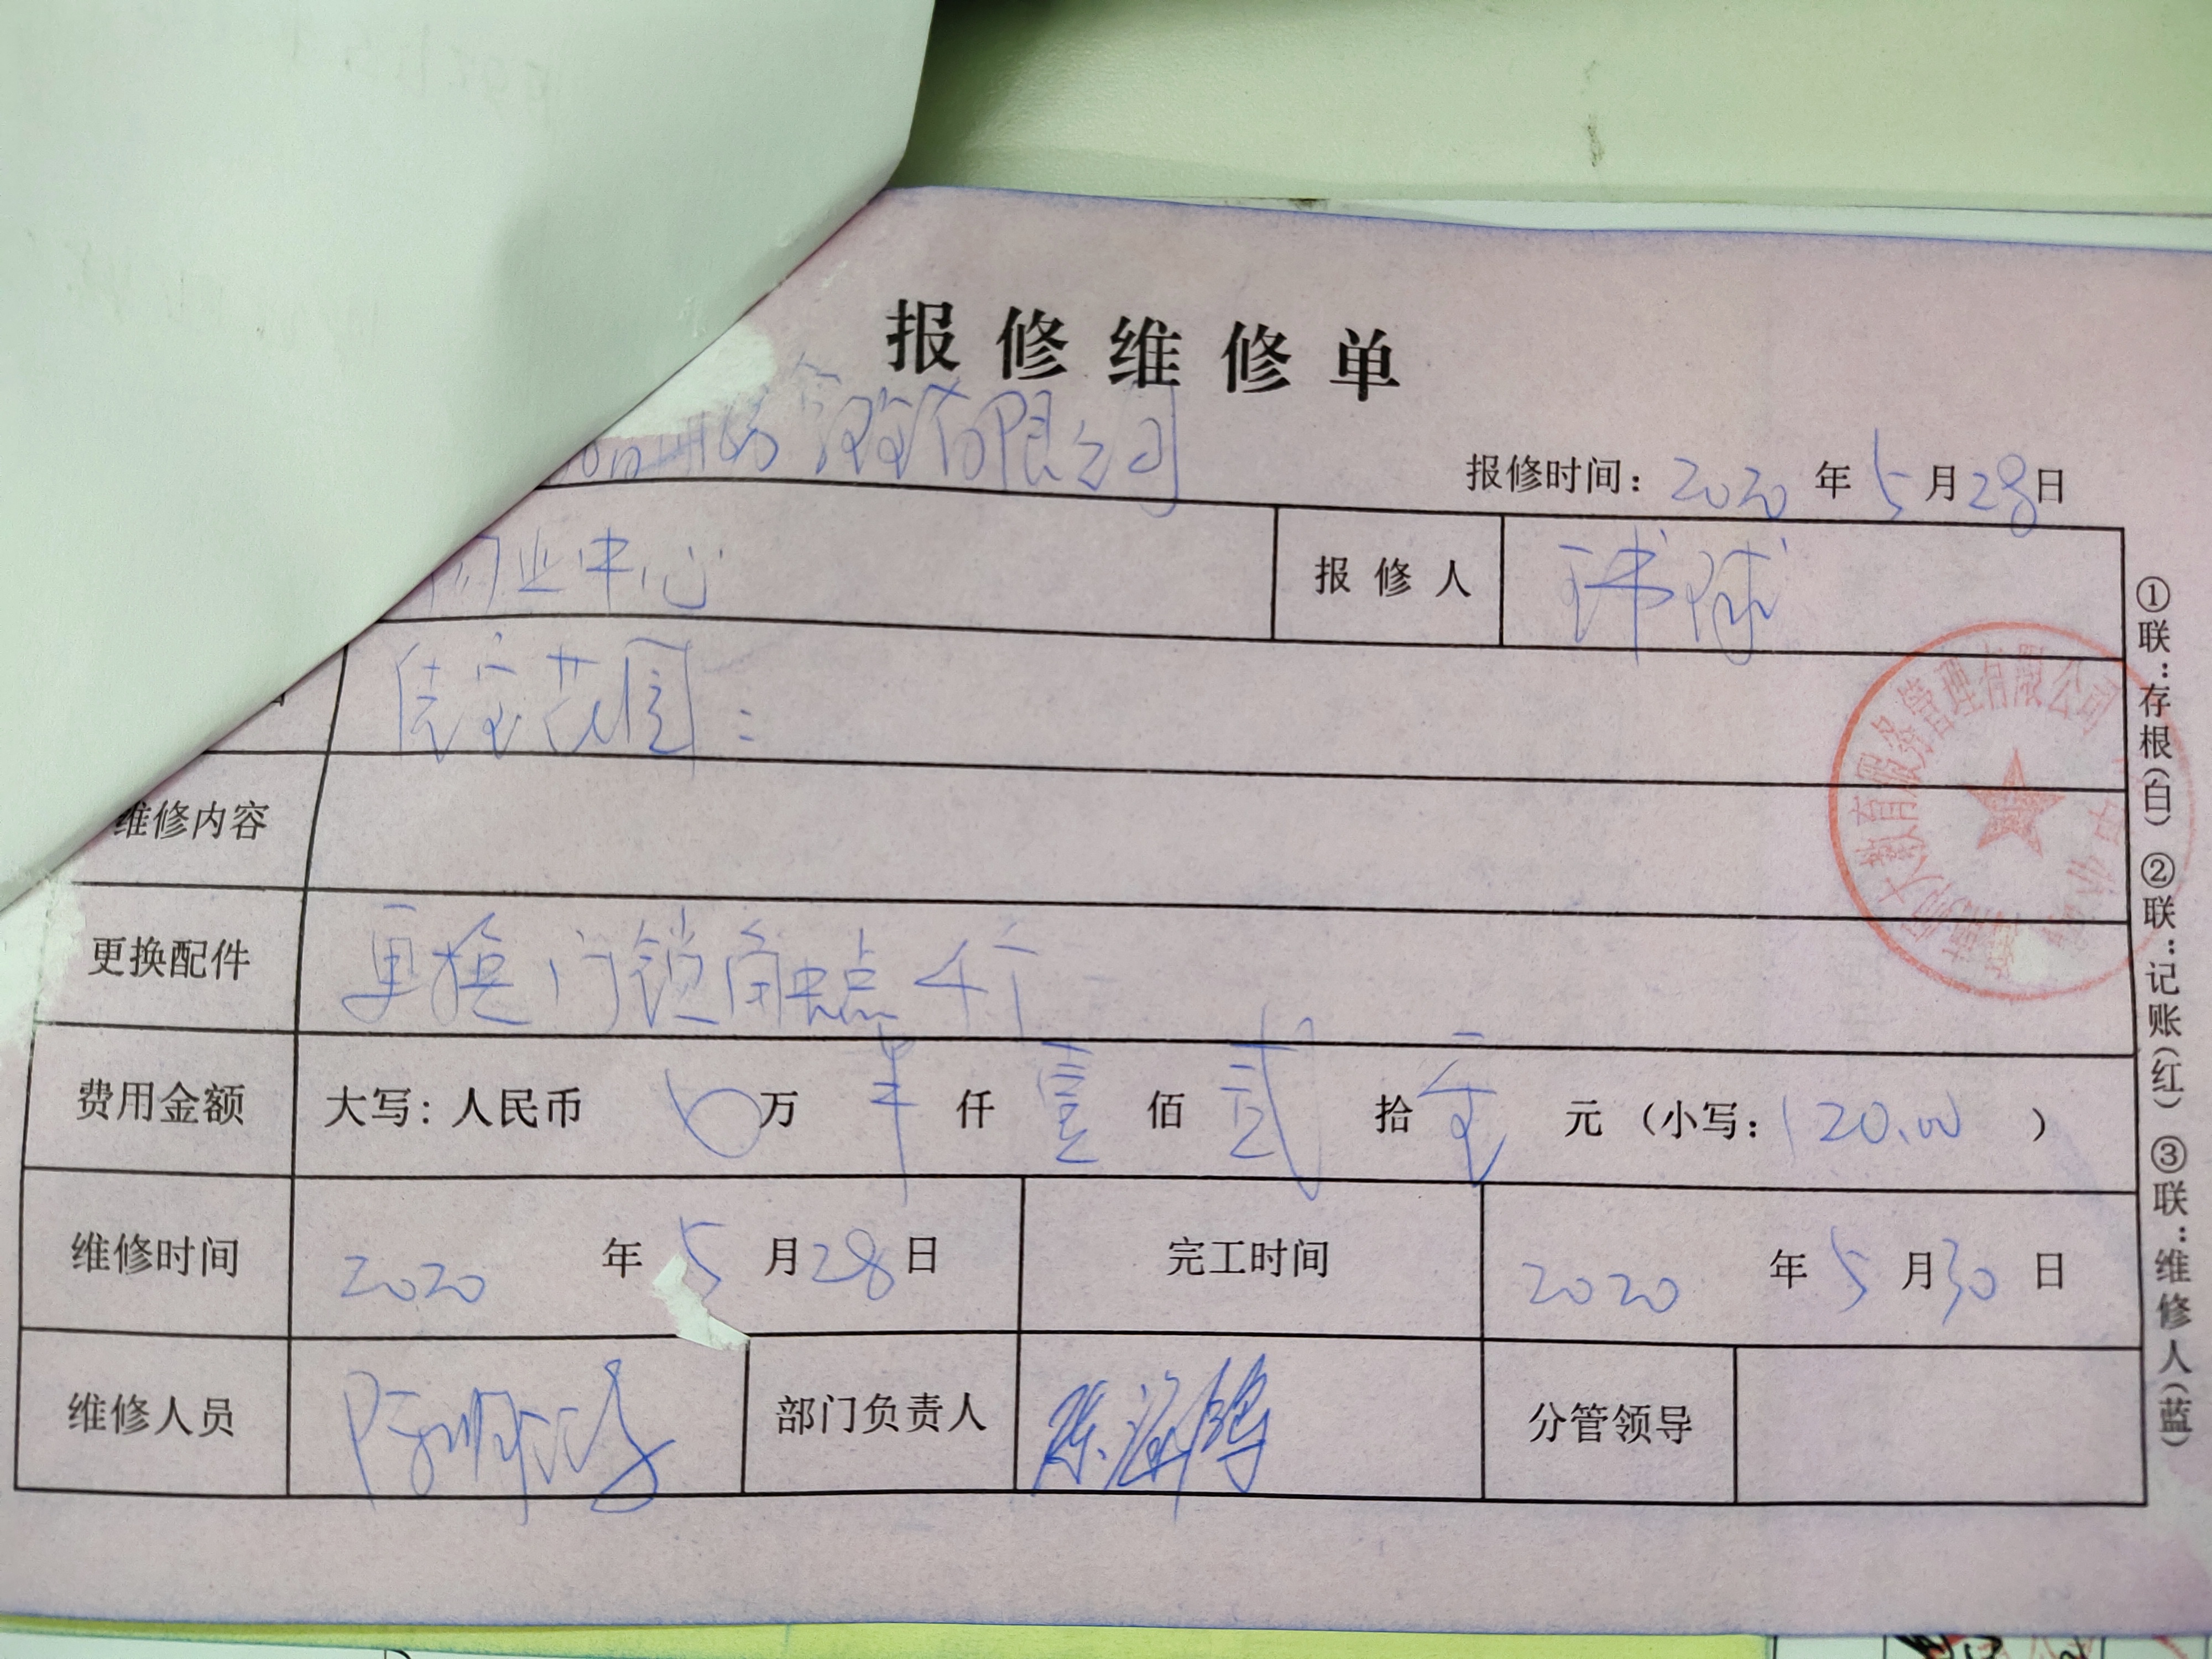 报修维修单
管理有限公司
报修时间：2020年5月28日
物业中心
报修人
花园：
维修内容
更换配件 更换门锁触点4个
费用金额 大写：人民币 万 仟壹佰贰拾零元（小写：120.00）
维修时间 2020年5月28日 完工时间 2020年5月30日
维修人员 部门负责人 分管领导
①联：存根（白）②联：记账（红）③联：维修人（蓝）
大教育服务管理有限公司